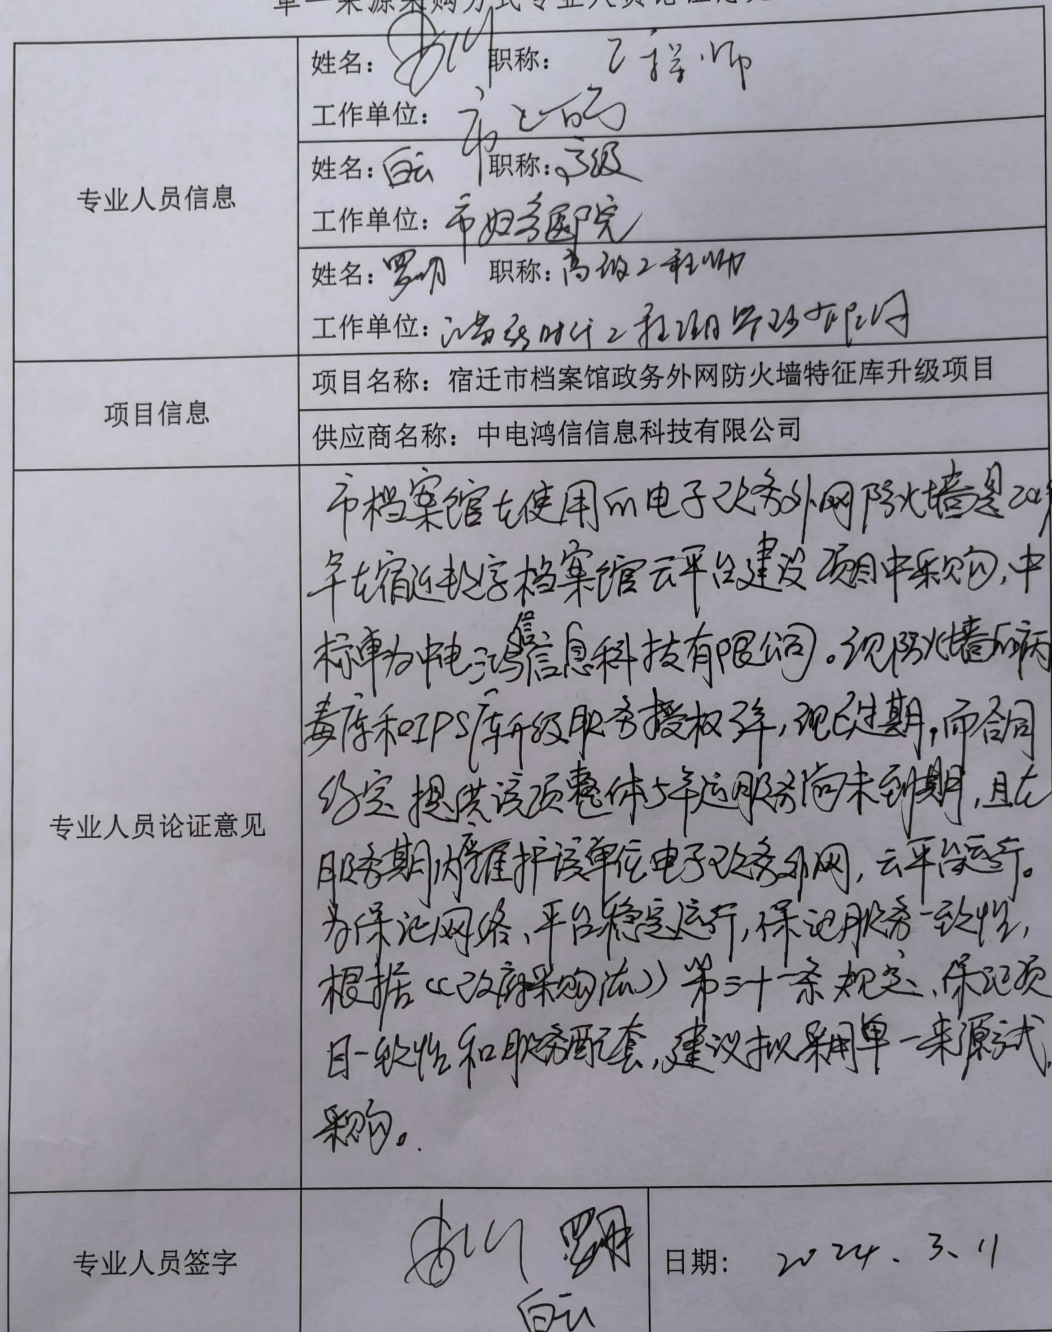 单一来源采购方式专业人员论证意见
专业人员信息
姓名： 职称： 工程师
工作单位： 市
姓名：白云 职称：高级
工作单位：市妇多医院
姓名：罗明 职称：高级工程师
工作单位： 新时代工程项目管理有限公司
项目信息
项目名称：宿迁市档案馆政务外网防火墙特征库升级项目
供应商名称：中电鸿信信息科技有限公司
专业人员论证意见
市档案馆在使用的电子政务外网防火墙是2019
年在宿迁数字档案馆云平台建设项目中采购，中
标单为中电鸿信信息科技有限公司。现防火墙的病
毒库和IPS库升级服务授权3年，现已过期，而合同
约定提供该项整体5年运服务尚未到期，且在
服务期内需维护该单位电子政务外网，云平台运行。
为保证网络、平台稳定运行，保证服务一致性，
根据《政府采购法》第三十一条规定、保证项
目一致性和服务配套，建议拟采用单一来源方式
采购。
专业人员签字
罗明
白云
日期： 2024.3.11